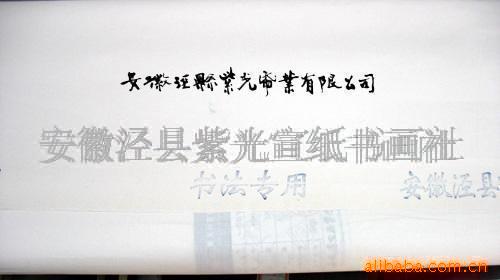 安徽泾縣紫光宣業有限公司
安徽泾县紫光宣纸书画社
书法专用
安徽泾县
阿里巴巴
alibaba.com.cn